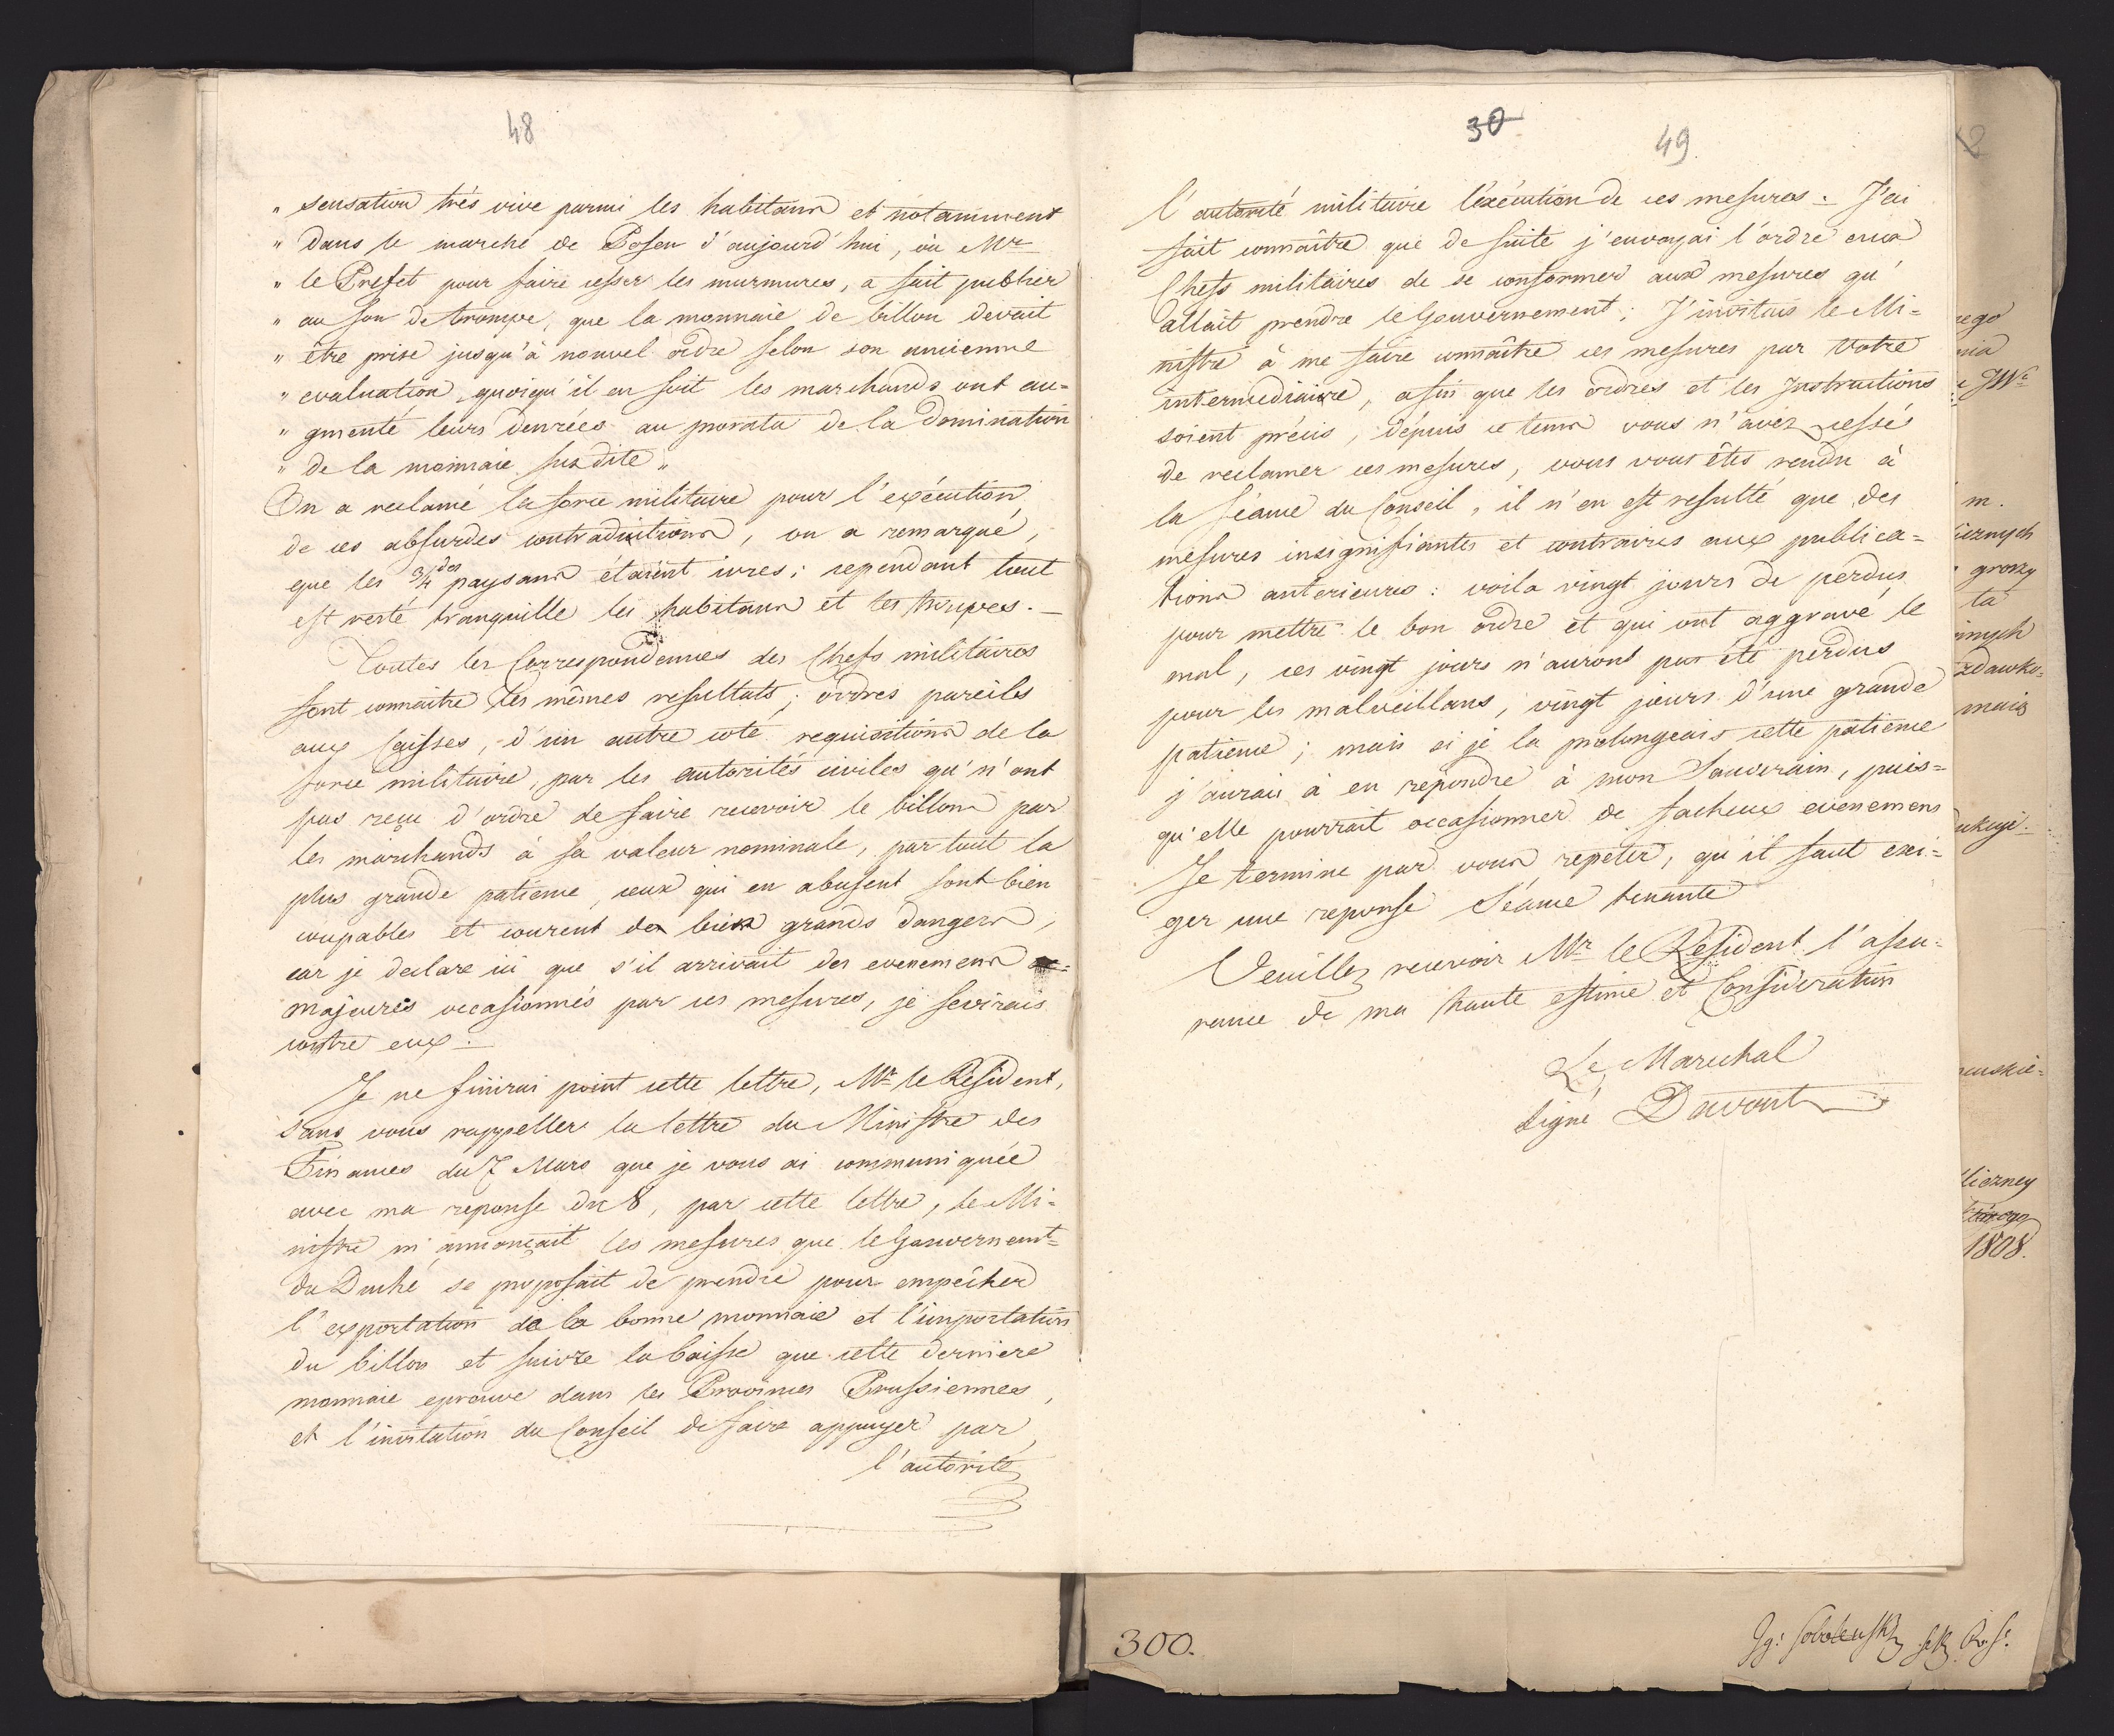 48
" sensation trés vive parmi les habitans et notamment
" dans le marché de Posen d'aujourd'hui, où Mr
" le Prefet pour faire cesser les murmures, a fait publier
" au son de trompe, que la monnaie de billon devait
" être prise jusqu'à nouvel ordre selon son ancienne
" evaluation, quoiqu'il en soit les marchands ont au=
" gmenté leurs denrées au prorata de la domination
" de la monnaie susdite "
On a reclamé la force militaire pour l'exécution
de ces absurdes contradictions, on a remarqué,
que les 3/4 des paysans étaient ivres; cependant tout
est resté tranquille les habitans et les troupes. —
Toutes les Correspondences des Chefs militaires
font connaitre les mêmes resultats; ordres pareils
aux Caisses, d'un autre coté requisitions de la
force militaire, par les autorités civiles qu'n'ont
pas reçu d'ordre de faire recevoir le billon par
les marchands à sa valeur nominale, par tout la
plus grande patience, ceux qui en abusent sont bien
coupables et courent de bien grands dangers,
car je declare ici que s'il arrivait des evenemens
majeures occasionnés par ces mesures, je sevirais
contre eux. —
Je ne finirai point cette lettre, Mr le Resident,
sans vous rappeller la lettre du Ministre des
Finances du 7 Mars que je vous ai communiquée
avec ma reponse du 8, par cette lettre, le Mi=
nistre m'annonçait les mesures que le Gouvernemt=
du Duché se proposait de prendre pour empêcher
l'exportation de la bonne monnaie et l'importation
du billon et suivre la baisse que cette derniere
monnaie eprouve dans les Provinces Prussiennes,
et l'invitation du Conseil de faire appuyer par
l'autorité
30
49.
l'autorité militaire l'éxécution de ces mesures. J'ai
fait connaître que de suite j'envoyai l'ordre aux
Chefs militaires de se conformer aux mesures qu'
allait prendre le Gouvernement; J'invitais le Mi=
nistre à me faire connaître ces mesures par Votre
intermediaire, afin que les ordres et les Instructions
soient précis, dépuis ce tems vous n'avez cessé
de reclamer ces mesures, vous vous êtes rendu à
la séance du Conseil, il n'en est resulté que des
mesures insignifiantes et contraires aux publica=
tions anterieures: voila vingt jours de perdus
pour mettre le bon ordre et qui ont aggravé le
mal, ces vingt jours n'auront pas été perdus
pour les malveillans, vingt jours d'une grande
patience; mais si je la prolongeais cette patience
j'aurais à en repondre à mon Souverain, puis=
qu'elle pourrait occasionner de facheux evenemens
Je termine par vous repeter, qu'il faut exi=
ger une reponse Séance tenante
Veuillez recevoir Mr le Resident l'assu=
rance de ma haute estime et Consideration
Le Marechal
Signé Davout
300.
1808.